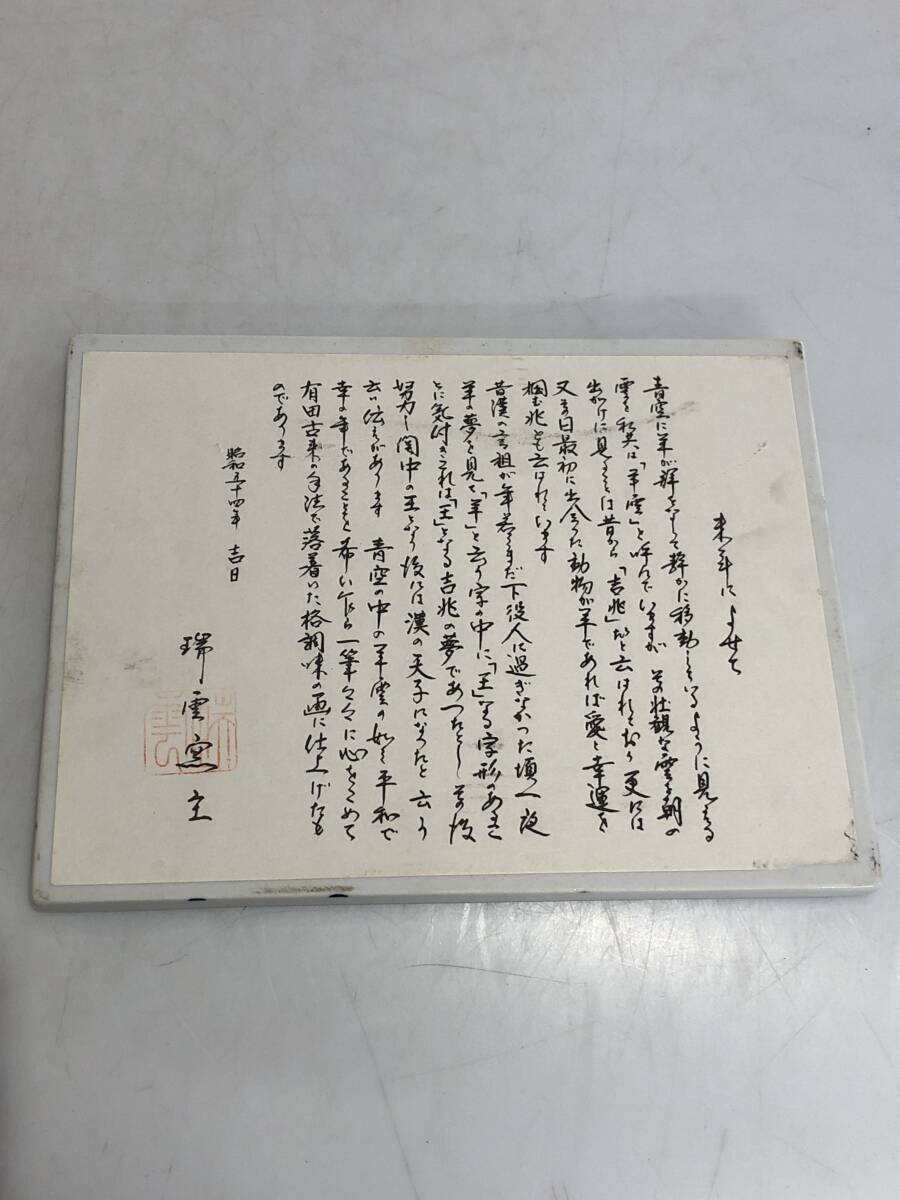 未年によせて
青空に羊が群をなして静かに移動しているように見える
雲を私共は「羊雲」と呼んでいますが 其壮観な雲を朝の
出がけに見ることは昔から「吉兆」だと云はれており 更には
又其日最初に出会った動物が羊であれば愛と幸運を
掴む兆とも云はれています
昔漢の高祖が年若くまだ下役人に過ぎなかった頃一夜
羊の夢を見て「羊」と云う字の中に「王」なる字形のあるこ
とに気付きこれは「王」となる吉兆の夢であったとし其の後
努力し関中の王となり後には漢の天子になったと云う
云い伝えがあります 青空の中の羊雲の如く平和で
幸の年であることを希い乍ら一筆々々に心をこめて
有田古来の手法で落着いた格調味の画に仕上げたも
のであります
昭和五十四年 吉日
瑞雲窯主